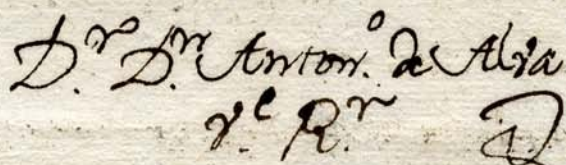 D.r D.n Anton.o de Alva
v.l R.r